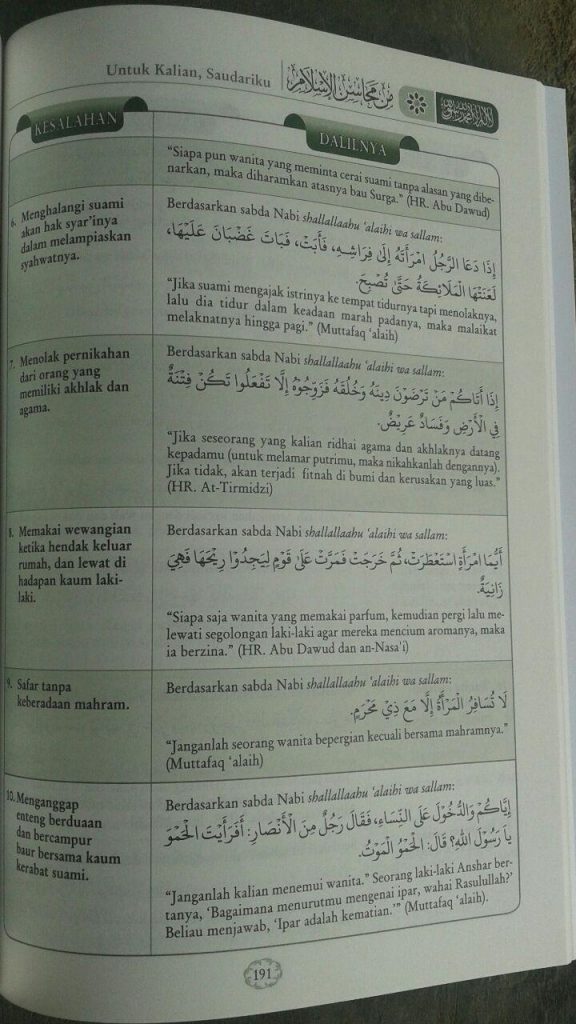 Untuk Kalian, Saudariku
من محاسن الإسلام
KESALAHAN
DALILNYA
“Siapa pun wanita yang meminta cerai suami tanpa alasan yang dibe-
narkan, maka diharamkan atasnya bau Surga.” (HR. Abu Dawud)
6. Menghalangi suami
akan hak syar’inya
dalam melampiaskan
syahwatnya.
Berdasarkan sabda Nabi shallallaahu ‘alaihi wa sallam:
إِذَا دَعَا الرَّجُلُ امْرَأَتَهُ إِلَى فِرَاشِهِ، فَأَبَتْ، فَبَاتَ غَضْبَانَ عَلَيْهَا،
لَعَنَتْهَا الْمَلَائِكَةُ حَتَّى تُصْبِحَ.
“Jika suami mengajak istrinya ke tempat tidurnya tapi menolaknya,
lalu dia tidur dalam keadaan marah padanya, maka malaikat
melaknatnya hingga pagi.” (Muttafaq ‘alaih)
7. Menolak pernikahan
dari orang yang
memiliki akhlak dan
agama.
Berdasarkan sabda Nabi shallallaahu ‘alaihi wa sallam:
إِذَا أَتَاكُمْ مَنْ تَرْضَوْنَ دِينَهُ وَخُلُقَهُ فَزَوِّجُوْهُ إِلَّا تَفْعَلُوا تَكُنْ فِتْنَةٌ
فِي الْأَرْضِ وَفَسَادٌ عَرِيْضٌ.
“Jika seseorang yang kalian ridhai agama dan akhlaknya datang
kepadamu (untuk melamar putrimu, maka nikahkanlah dengannya).
Jika tidak, akan terjadi fitnah di bumi dan kerusakan yang luas.”
(HR. At-Tirmidzi)
8. Memakai wewangian
ketika hendak keluar
rumah, dan lewat di
hadapan kaum laki-
laki.
Berdasarkan sabda Nabi shallallaahu ‘alaihi wa sallam:
أَيُّمَا امْرَأَةٍ اسْتَعْطَرَتْ، ثُمَّ خَرَجَتْ فَمَرَّتْ عَلَى قَوْمٍ لِيَجِدُوْا رِيْحَهَا فَهِيَ
زَانِيَةٌ.
“Siapa saja wanita yang memakai parfum, kemudian pergi lalu me-
lewati segolongan laki-laki agar mereka mencium aromanya, maka
ia berzina.” (HR. Abu Dawud dan an-Nasa'i)
9. Safar tanpa
keberadaan mahram.
Berdasarkan sabda Nabi shallallaahu ‘alaihi wa sallam:
لَا تُسَافِرُ الْمَرْأَةُ إِلَّا مَعَ ذِيْ مَحْرَمٍ.
“Janganlah seorang wanita bepergian kecuali bersama mahramnya.”
(Muttafaq ‘alaih)
10. Menganggap
enteng berduaan
dan bercampur
baur bersama kaum
kerabat suami.
Berdasarkan sabda Nabi shallallaahu ‘alaihi wa sallam:
إِيَّاكُمْ وَالدُّخُوْلَ عَلَى النِّسَاءِ، فَقَالَ رَجُلٌ مِنَ الْأَنْصَارِ: أَفَرَأَيْتَ الْحَمْوَ
يَا رَسُوْلَ اللهِ؟ قَالَ: الْحَمْوُ الْمَوْتُ.
“Janganlah kalian menemui wanita.” Seorang laki-laki Anshar ber-
tanya, ‘Bagaimana menurutmu mengenai ipar, wahai Rasulullah?’
Beliau menjawab, ‘Ipar adalah kematian.’” (Muttafaq ‘alaih).
191